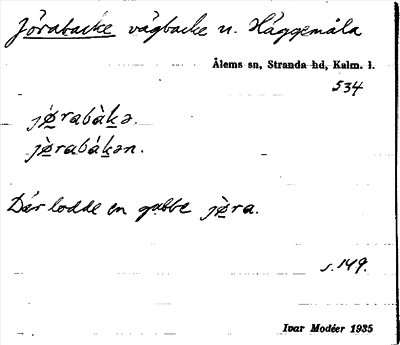 Jörabacke vägbacke n. Häggemåla
Ålems sn, Stranda hd, Kalm. l.
534
jø̀rabàḵə.
jø̀rabáḵən.
Där lodde en gubbe jø̀ra.
s. 149.
Ivar Modéer 1935